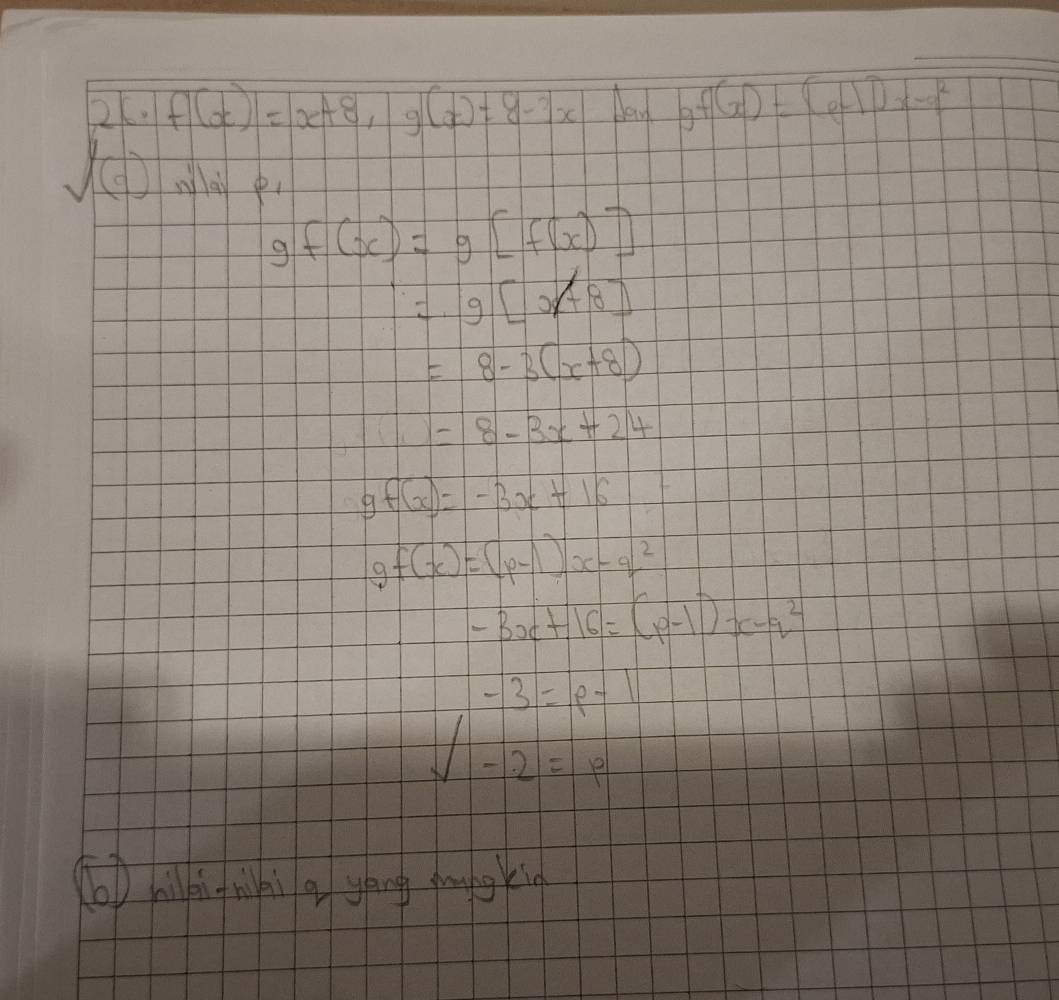 26. f(x) = x+8, g(x) = 8-3x dan gf(x) = (p-1)x-q²
(a) nilai p.
gf(x) = g[f(x)]
= g[x+8]
= 8-3(x+8)
= 8-3x+24
gf(x) = -3x+16
gf(x) = (p-1)x-q²
-3x+16 = (p-1)x-q²
-3 = p-1
-2 = p
(b) nilai-nilai q yang mungkin